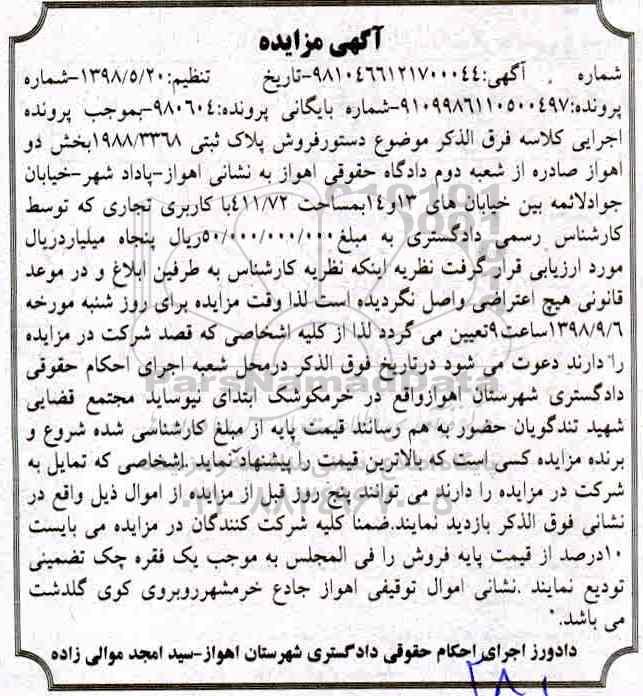 آگهی مزایده
شماره آگهی:۹۸۱۰۴۶۶۱۲۱۷۰۰۰۴۴-تاریخ تنظیم:۱۳۹۸/۵/۲۰-شماره
پرونده:۹۱۰۹۹۸۶۱۱۰۵۰۰۴۹۷-شماره بایگانی پرونده:۹۸۰۶۰۴-بموجب پرونده
اجرایی کلاسه فرق الذکر موضوع دستورفروش پلاک ثبتی ۱۹۸۸/۳۳۶۸بخش دو
اهواز صادره از شعبه دوم دادگاه حقوقی اهواز به نشانی اهواز-پاداد شهر-خیابان
جوادلائمه بین خیابان های ۱۳و۱۴بمساحت ۴۱۱/۷۲با کاربری تجاری که توسط
کارشناس رسمی دادگستری به مبلغ۵۰/۰۰۰/۰۰۰/۰۰۰ریال پنجاه میلیاردریال
مورد ارزیابی قرار گرفت نظریه اینکه نظریه کارشناس به طرفین ابلاغ و در موعد
قانونی هیچ اعتراضی واصل نگردیده است لذا وقت مزایده برای روز شنبه مورخه
۱۳۹۸/۹/۶ساعت۹تعیین می گردد لذا از کلیه اشخاصی که قصد شرکت در مزایده
را دارند دعوت می شود درتاریخ فوق الذکر درمحل شعبه اجرای احکام حقوقی
دادگستری شهرستان اهوازواقع در خرمکوشک ابتدای نیوساید مجتمع قضایی
شهید تندگویان حضور به هم رسانند قیمت پایه از مبلغ کارشناسی شده شروع و
برنده مزایده کسی است که بالاترین قیمت را پیشنهاد نماید .اشخاصی که تمایل به
شرکت در مزایده را دارند می توانند پنج روز قبل از مزایده از اموال ذیل واقع در
نشانی فوق الذکر بازدید نمایند.ضمنا کلیه شرکت کنندگان در مزایده می بایست
۱۰درصد از قیمت پایه فروش را فی المجلس به موجب یک فقره چک تضمینی
تودیع نمایند .نشانی اموال توقیفی اهواز جادع خرمشهرروبروی کوی گلدشت
می باشد.
دادورز اجرای احکام حقوقی دادگستری شهرستان اهواز-سید امجد موالی زاده
ParsNamadData
۰۲۱-۸۸۳۴۹۶۷۰-۵